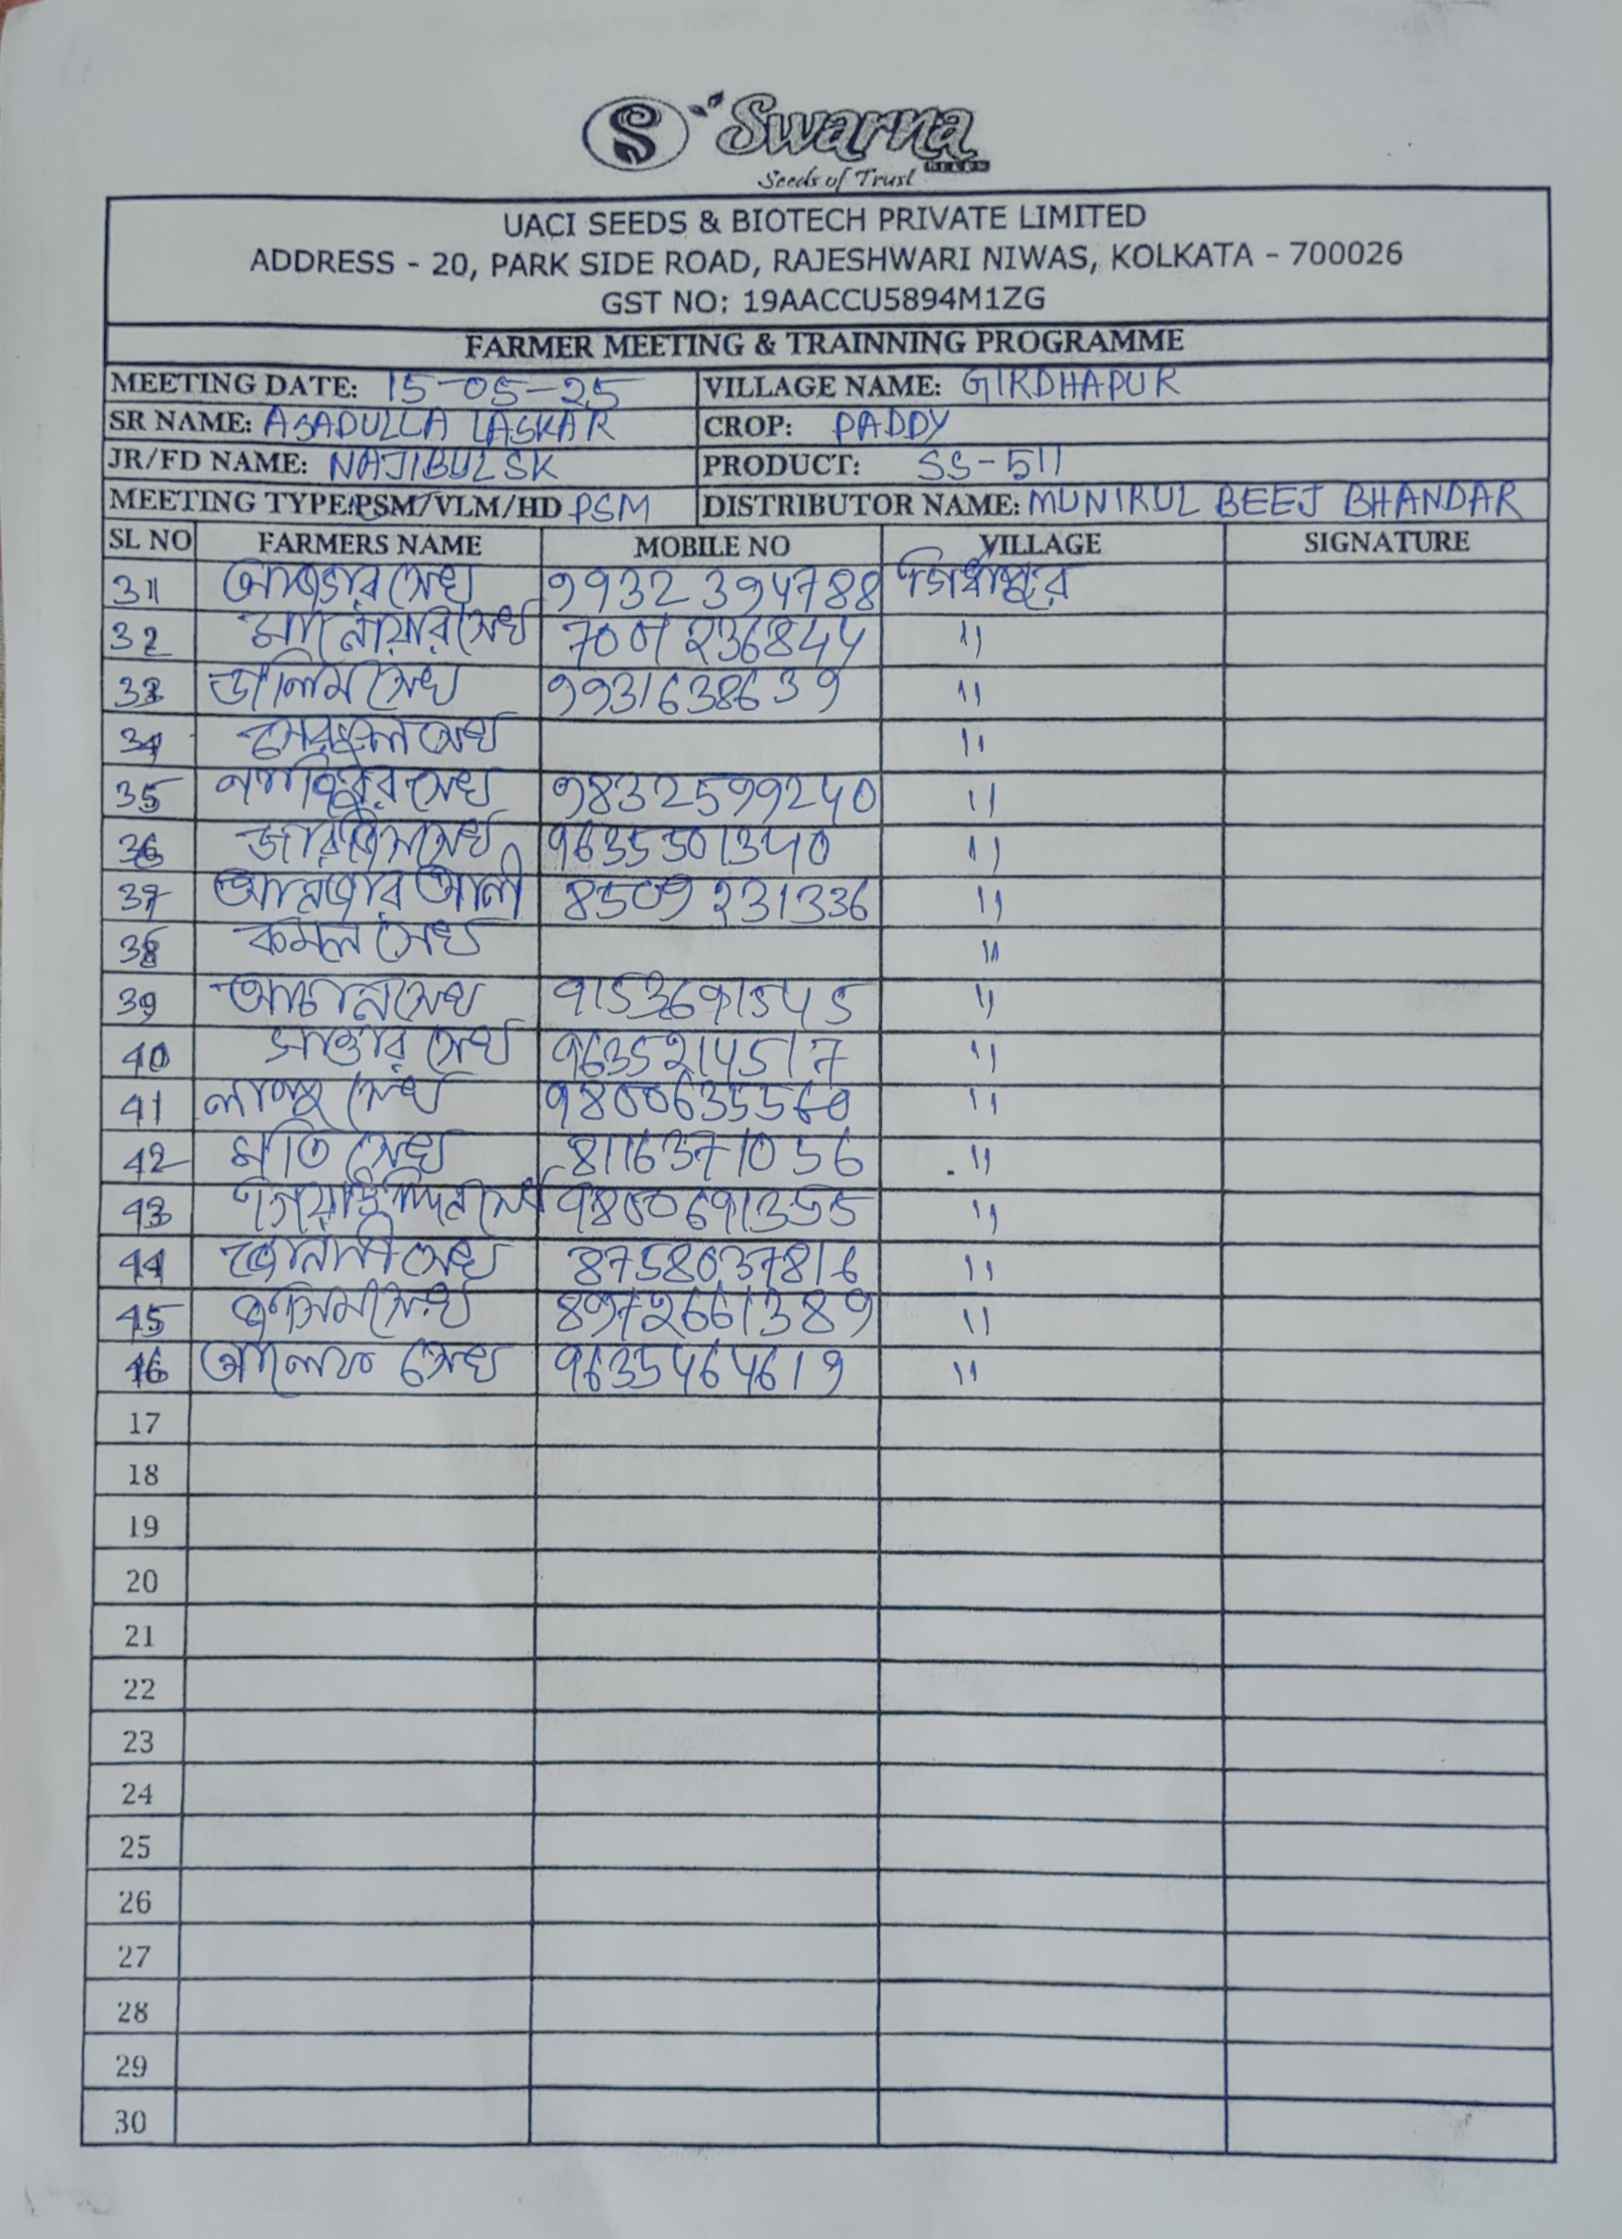 S Swarna
SEEDS
Seeds of Trust
UACI SEEDS & BIOTECH PRIVATE LIMITED
ADDRESS - 20, PARK SIDE ROAD, RAJESHWARI NIWAS, KOLKATA - 700026
GST NO: 19AACCU5894M1ZG
FARMER MEETING & TRAINNING PROGRAMME
MEETING DATE: 15-05-25 VILLAGE NAME: GIRDHAPUR
SR NAME: ASADULLA LASKAR CROP: PADDY
JR/FD NAME: NAJIBUL SK PRODUCT: SS-511
MEETING TYPE:PSM/VLM/HD PSM DISTRIBUTOR NAME: MUNIRUL BEEJ BHANDAR
SL NO FARMERS NAME MOBILE NO VILLAGE SIGNATURE
31 সেখ 9932394788
32 মানোয়ার সেখ 7001236844 "
33 ডালিম সেখ 9931638639 "
34 সেখ "
35 সেখ 9832599240 "
36 সেখ 9635501340 "
37 আনজার আলী 8509231336 "
38 কমল সেখ "
39 সেখ 9153691545 "
40 সাত্তার সেখ 9635214517 "
41 লালু সেখ 9800635560 "
42 মতি সেখ 8116371056 "
43 9800691355 "
44 সেখ 8758037816 "
45 সেখ 8972661389 "
46 আলেফ সেখ 9635464619 "
17
18
19
20
21
22
23
24
25
26
27
28
29
30